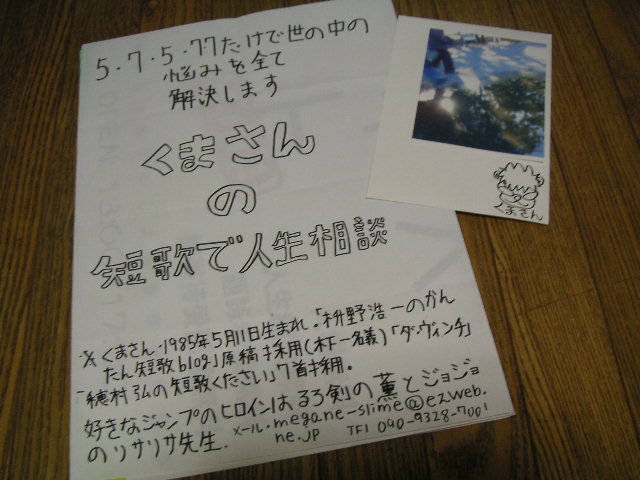 5・7・5・77だけで世の中の
悩みを全て
解決します
くまさん
の
短歌で人生相談
※くまさん・1985年5月11日生まれ。「枡野浩一のかん
たん短歌blog」原稿採用(木下一名義)「ダ・ヴィンチ」
「穂村弘の短歌ください」7首採用。
好きなジャンプのヒロインはるろ剣の薫とジョジョ
のリサリサ先生.
メール・megane-slime@ezweb.
ne.jp
TEl 090-9328-7001
くまさん